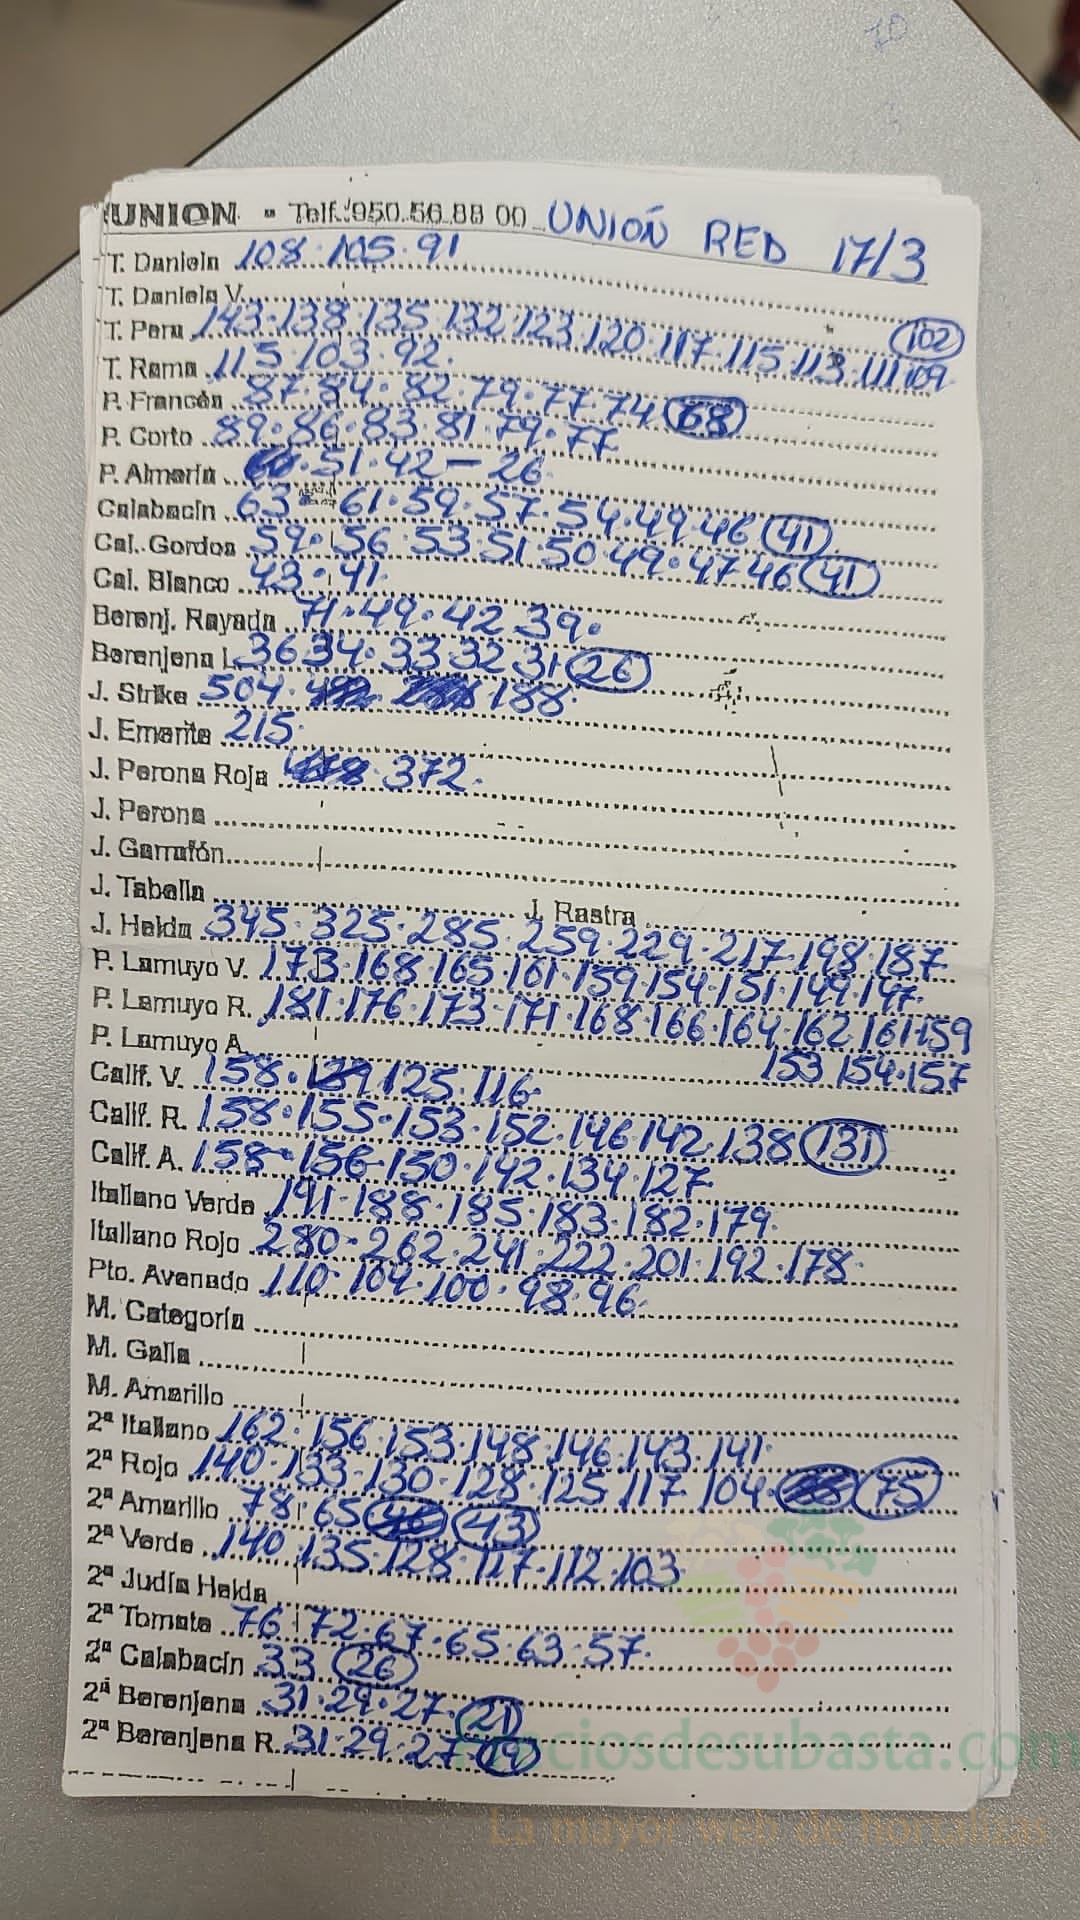 UNION - Telf. 950.56.88 00 UNIÓN RED 17/3
T. Daniela 108.105.91
T. Daniela V.
T. Pera 143.138.135.132.123.120.117.115.113.111.109 (102)
T. Rama 115.103.92.
P. Francés 87.84.82.79.77.74 (68)
P. Corto 89.86.83.81.79.77
P. Almería .51.42-26
Calabacín 63-61.59.57.54.49.46 (41)
Cal. Gordos 59.56.53.51.50.49.47 46 (41)
Cal. Blanco 43.41
Berenj. Rayada 71.49.42 39.
Berenjena L 36 34.33 32 31 (26)
J. Strike 504. 188.
J. Emerite 215.
J. Perona Roja 372.
J. Perona
J. Garrafón
J. Tabella J. Rastra
J. Helda 345.325.285.259.229.217.198.187
P. Lamuyo V. 173.168.165.161.159.154.151.149.147.
P. Lamuyo R. 181.176.173.171.168.166.164.162.161.159
P. Lamuyo A. 153 154.157
Calif. V. 158.125.116.
Calif. R. 158.155.153.152.146.142.138 (131)
Calif. A. 158-156-150.142.134.127
Italiano Verde 191.188.185.183.182.179.
Italiano Rojo 280-262.241.222.201.192.178.
Pto. Avenado 110.104.100.98.96.
M. Categoría
M. Galia
M. Amarillo
2ª Italiano 162.156.153.148.146.143.141.
2ª Rojo 140.133-130-128.125.117 104. (75)
2ª Amarillo 78.65 (43)
2ª Verde 140.135.128.117.112.103.
2ª Judía Helda
2ª Tomate 76.72.67.65.63.57.
2ª Calabacín 33 (26)
2ª Berenjena 31.29.27. (21)
2ª Berenjena R. 31.29.27. (19)
ciosdesubasta.com
La mayor web de hortalizas